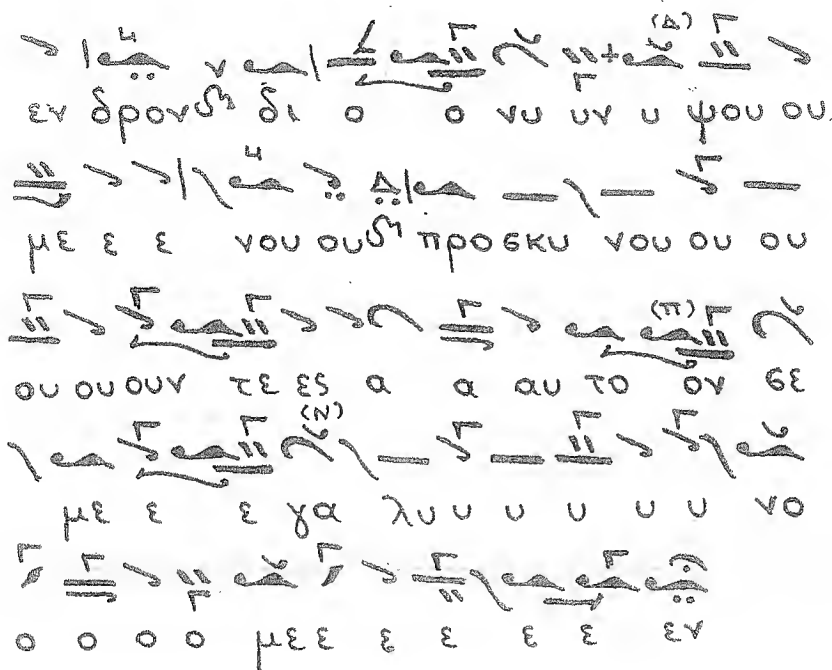 (Δ)
εν δρον δι ο ο νυ υν υ ψου ου
με ε ε νου ου προσκυ νου ου ου
(π)
ου ου ουν τε ες α α αυ το ον σε
(Ν)
με ε ε γα λυ υ υ υ υ υ νο
ο ο ο ο με ε ε ε ε ε εν